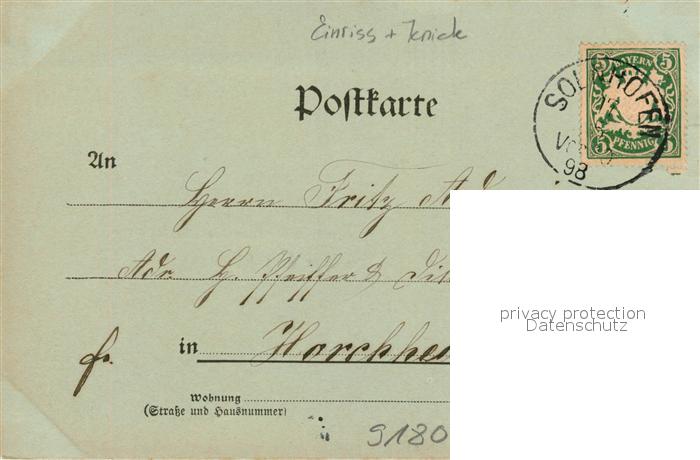 Einriss + Knick
Postkarte
BAYERN
5 5
5 5
PFENNIG
SOLNHOFEN
98
An
Herrn Fritz
Adr. H. Pfeiffer &
fr.
in
Wohnung
(Straße und Hausnummer)
9180
privacy protection
Datenschutz